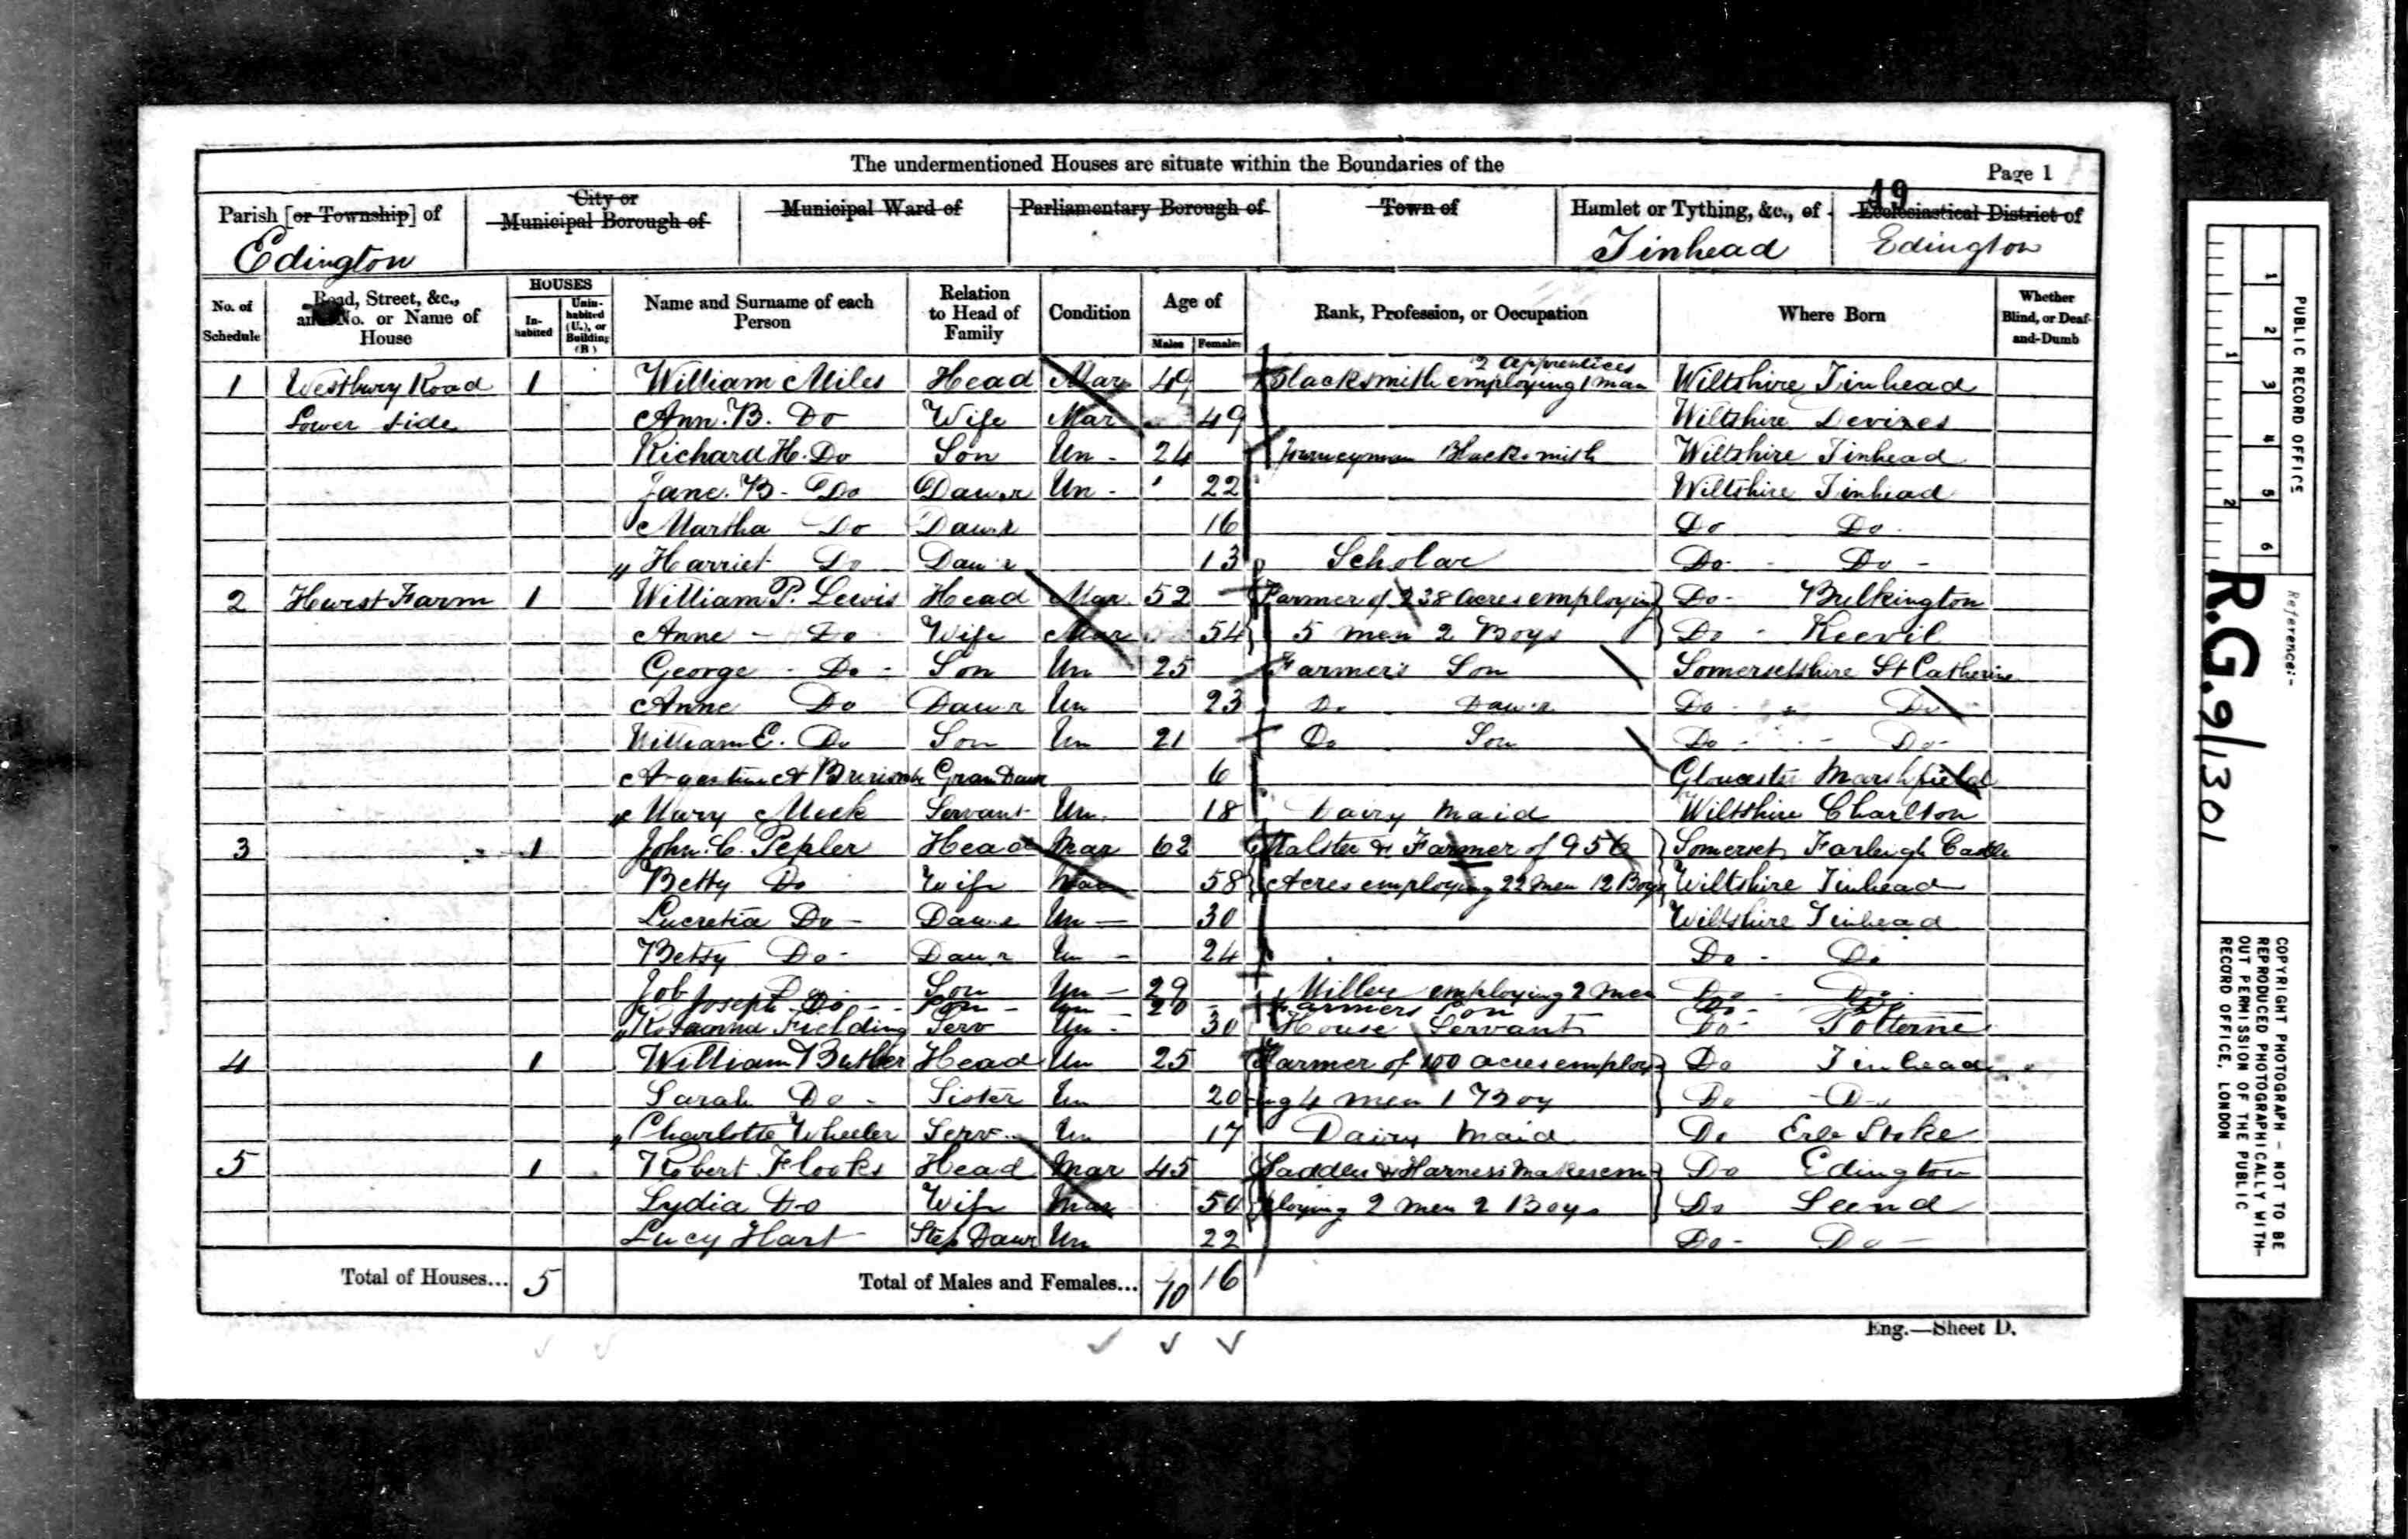 The undermentioned Houses are situate within the Boundaries of the
Page 1
19
Parish [or Township] of
Edington
City or Municipal Borough of
Municipal Ward of
Parliamentary Borough of
Town of
Hamlet or Tything, &c., of
Tinhead
Ecclesiastical District of
Edington
No. of Schedule
Road, Street, &c., and No. or Name of House
HOUSES
In-habited
Unin-habited (U.), or Building (B)
Name and Surname of each Person
Relation to Head of Family
Condition
Age of
Males
Females
Rank, Profession, or Occupation
Where Born
Whether Blind, or Deaf-and-Dumb
2 Apprentices
1 Westbury Road 1 William Miles Head Mar 49 Blacksmith employing 1 man Wiltshire Tinhead
Lower Side Ann. B. Do Wife Mar 49 Wiltshire Devizes
Richard H. Do Son Un - 24 Journeyman Blacksmith Wiltshire Tinhead
Jane. B - Do Dau'r Un - 22 Wiltshire Tinhead
Martha Do Dau'r 16 Do Do
Harriet Do Dau'r 13 Scholar Do - Do -
2 Hurst Farm 1 William P. Lewis Head Mar 52 Farmer of 238 Acres employing Do - Bulkington
Anne - Do Wife Mar 54 5 men 2 Boys Do - Keevil
George - Do - Son Un 25 Farmer's Son Somersetshire St Catherine
Anne Do Dau'r Un 23 Do Dau'r Do - Do
William E. Do Son Un 21 Do Son Do - - Do -
GranDaur 6 Gloucester Marshfield
Mary Meek Servant Un. 18 Dairy Maid Wiltshire Charlton
3 1 John. C. Pepler Head Mar 62 Malster & Farmer of 956 Somerset Farleigh Castle
Betty Do Wife Mar 58 Acres employing 22 Men 12 Boys Wiltshire Tinhead
Lucretia Do - Dau'r Un - 30 Wiltshire Tinhead
Betsy Do - Dau'r Un - 24 Do - Do
Job Do Son Un - 29 Miller employing 2 Men Do - Do
Joseph Do - Son - Un - 20 Farmers Son Do - Do
Fielding Serv Un - 30 House Servant Do - Potterne
4 1 William Butler Head Un 25 Farmer of 100 acres employ- Do Tinhead
Sarah Do - Sister Un 20 ing 4 men 1 Boy Do - Do
Charlotte Wheeler Serv Un 17 Dairy Maid Do Erle Stoke
5 1 Robert Flooks Head Mar 45 Saddler & Harness Maker em Do Edington
Lydia Do Wife Mar 50 ploying 2 Men 2 Boys Do Seend
Lucy Hart Step Daur Un 22 Do - Do -
Total of Houses... 5
Total of Males and Females... 10 16
Eng.—Sheet D.
PUBLIC RECORD OFFICE
1 2 3 4 5 6
1 2
Reference:-
R.G. 9/1301
COPYRIGHT PHOTOGRAPH - NOT TO BE
REPRODUCED PHOTOGRAPHICALLY WITH-
OUT PERMISSION OF THE PUBLIC
RECORD OFFICE, LONDON